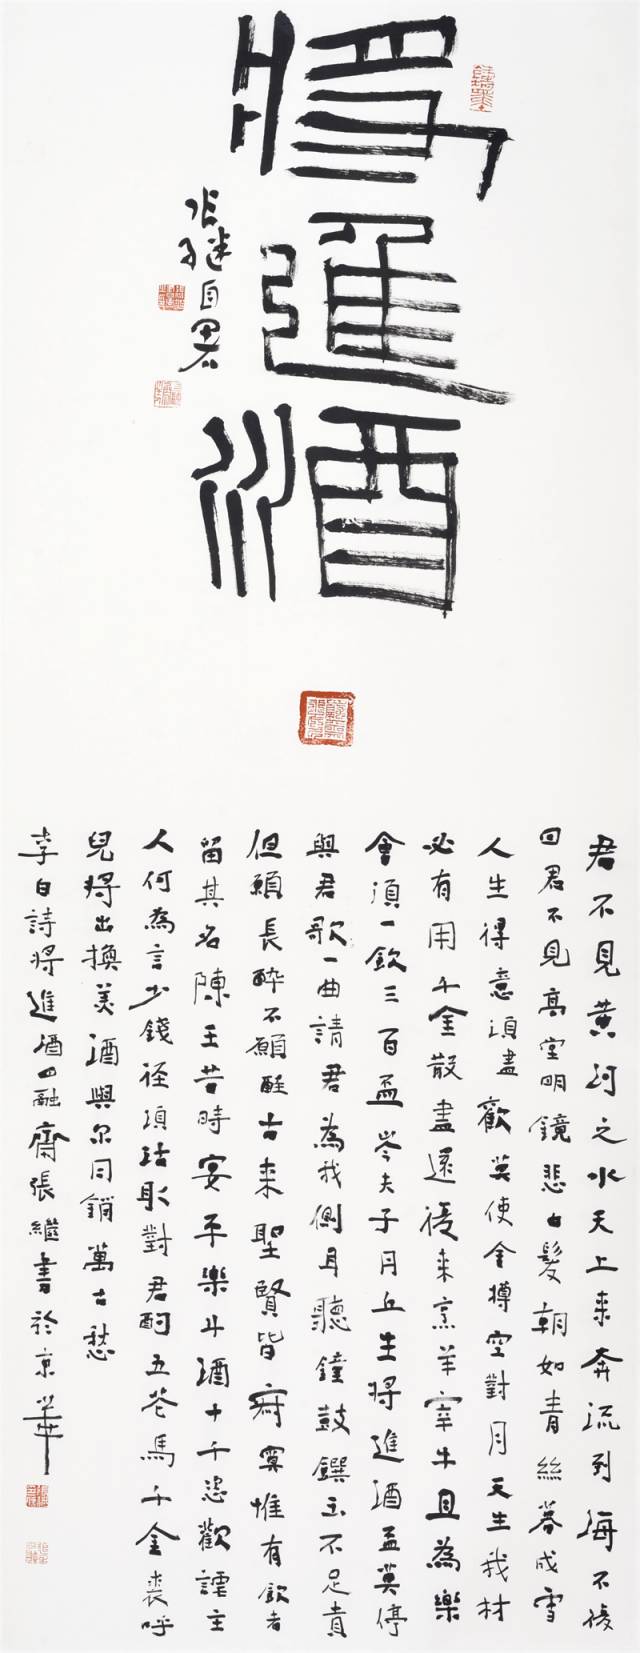 將進酒
張繼自署
君不見黃河之水天上來奔流到海不復
回君不見高堂明鏡悲白髮朝如青絲暮成雪
人生得意須盡歡莫使金樽空對月天生我材
必有用千金散盡還復來烹羊宰牛且為樂
會須一飲三百盃岑夫子丹丘生將進酒盃莫停
與君歌一曲請君為我側耳聽鐘鼓饌玉不足貴
但願長醉不願醒古來聖賢皆寂寞惟有飲者
留其名陳王昔時宴平樂斗酒十千恣歡謔主
人何為言少錢徑須沽取對君酌五花馬千金裘呼
兒將出換美酒與爾同銷萬古愁
李白詩將進酒四融齋張繼書於京華